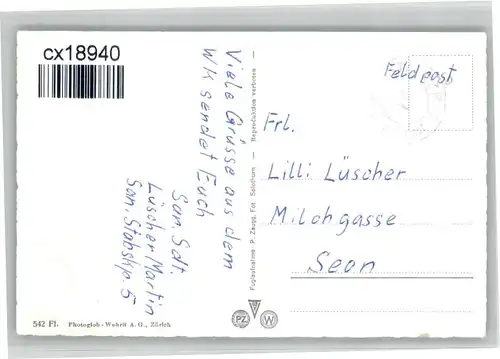 cx18940
Viele Grüsse aus dem
WK sendet Euch
San. Sdt.
Lüscher Martin
San. Stabskp. 5
Feldpost
Frl.
Lilli Lüscher
Milchgasse
Seon
Flugaufnahme P. Zaugg, Fot. Solothurn — Reproduktion verboten —
PZ
W
542 Fl. Photoglob-Wehrli A.G., Zürich